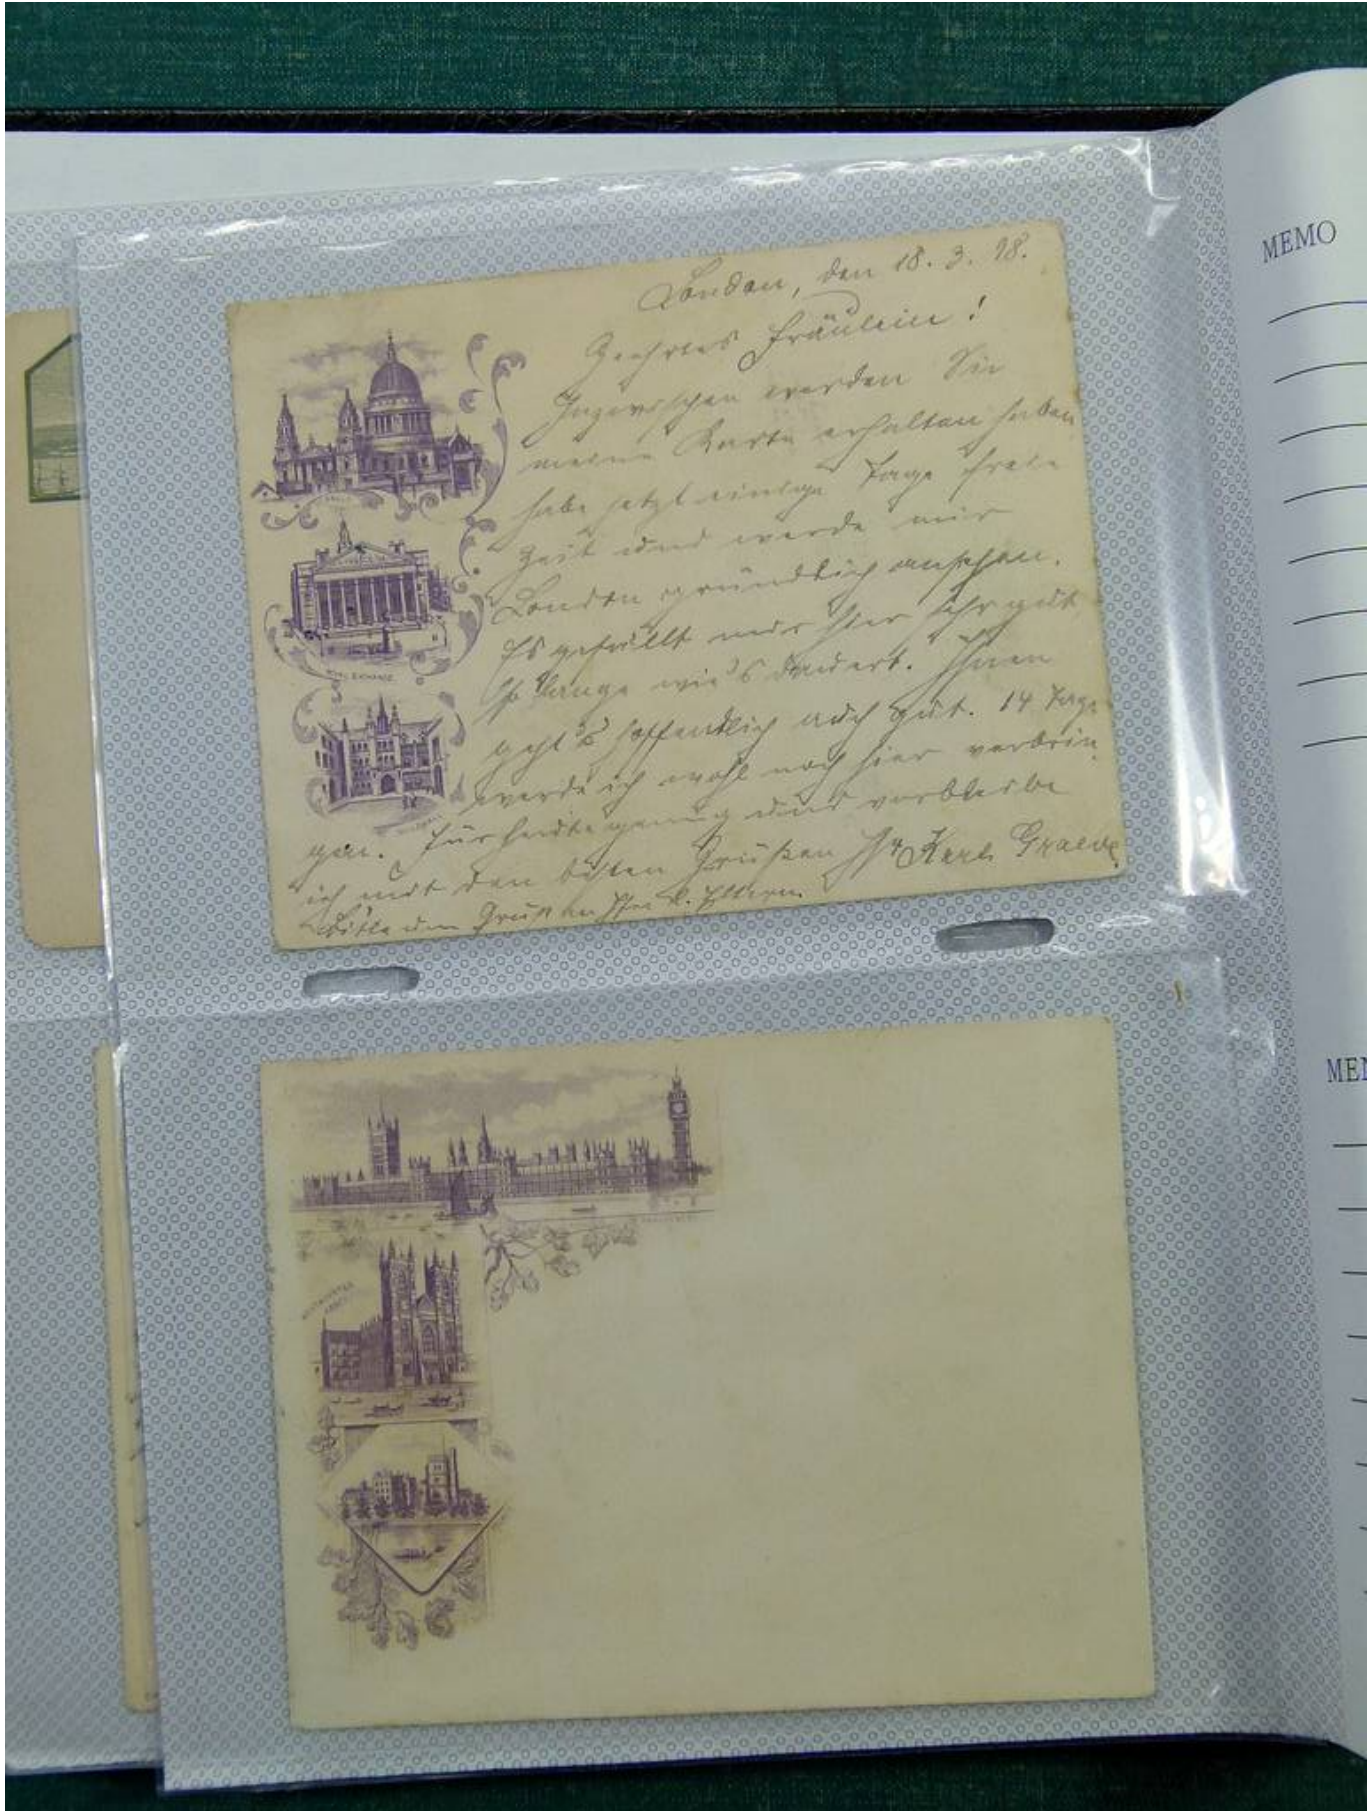 London, den 18. 3. 98.
Geehrtes Fräulein!
Inzwischen werden Sie
meine Karte erhalten haben
habe jetzt einige Tage freie
Zeit und werde mir
London gründlich ansehen.
Es gefällt mir hier sehr gut
so lange wie's dauert. Ihnen
geht's hoffentlich auch gut. 14 Tage
werde ich wohl noch hier verbrin
gen. Für heute genug und verbleibe
ich mit den besten Grüßen Ihr Karl Graeve
Bitte um Gruß an Ihre l. Eltern.
ROYAL EXCHANGE
GUILDHALL
WESTMINSTER
ABBEY
MEMO
MEM